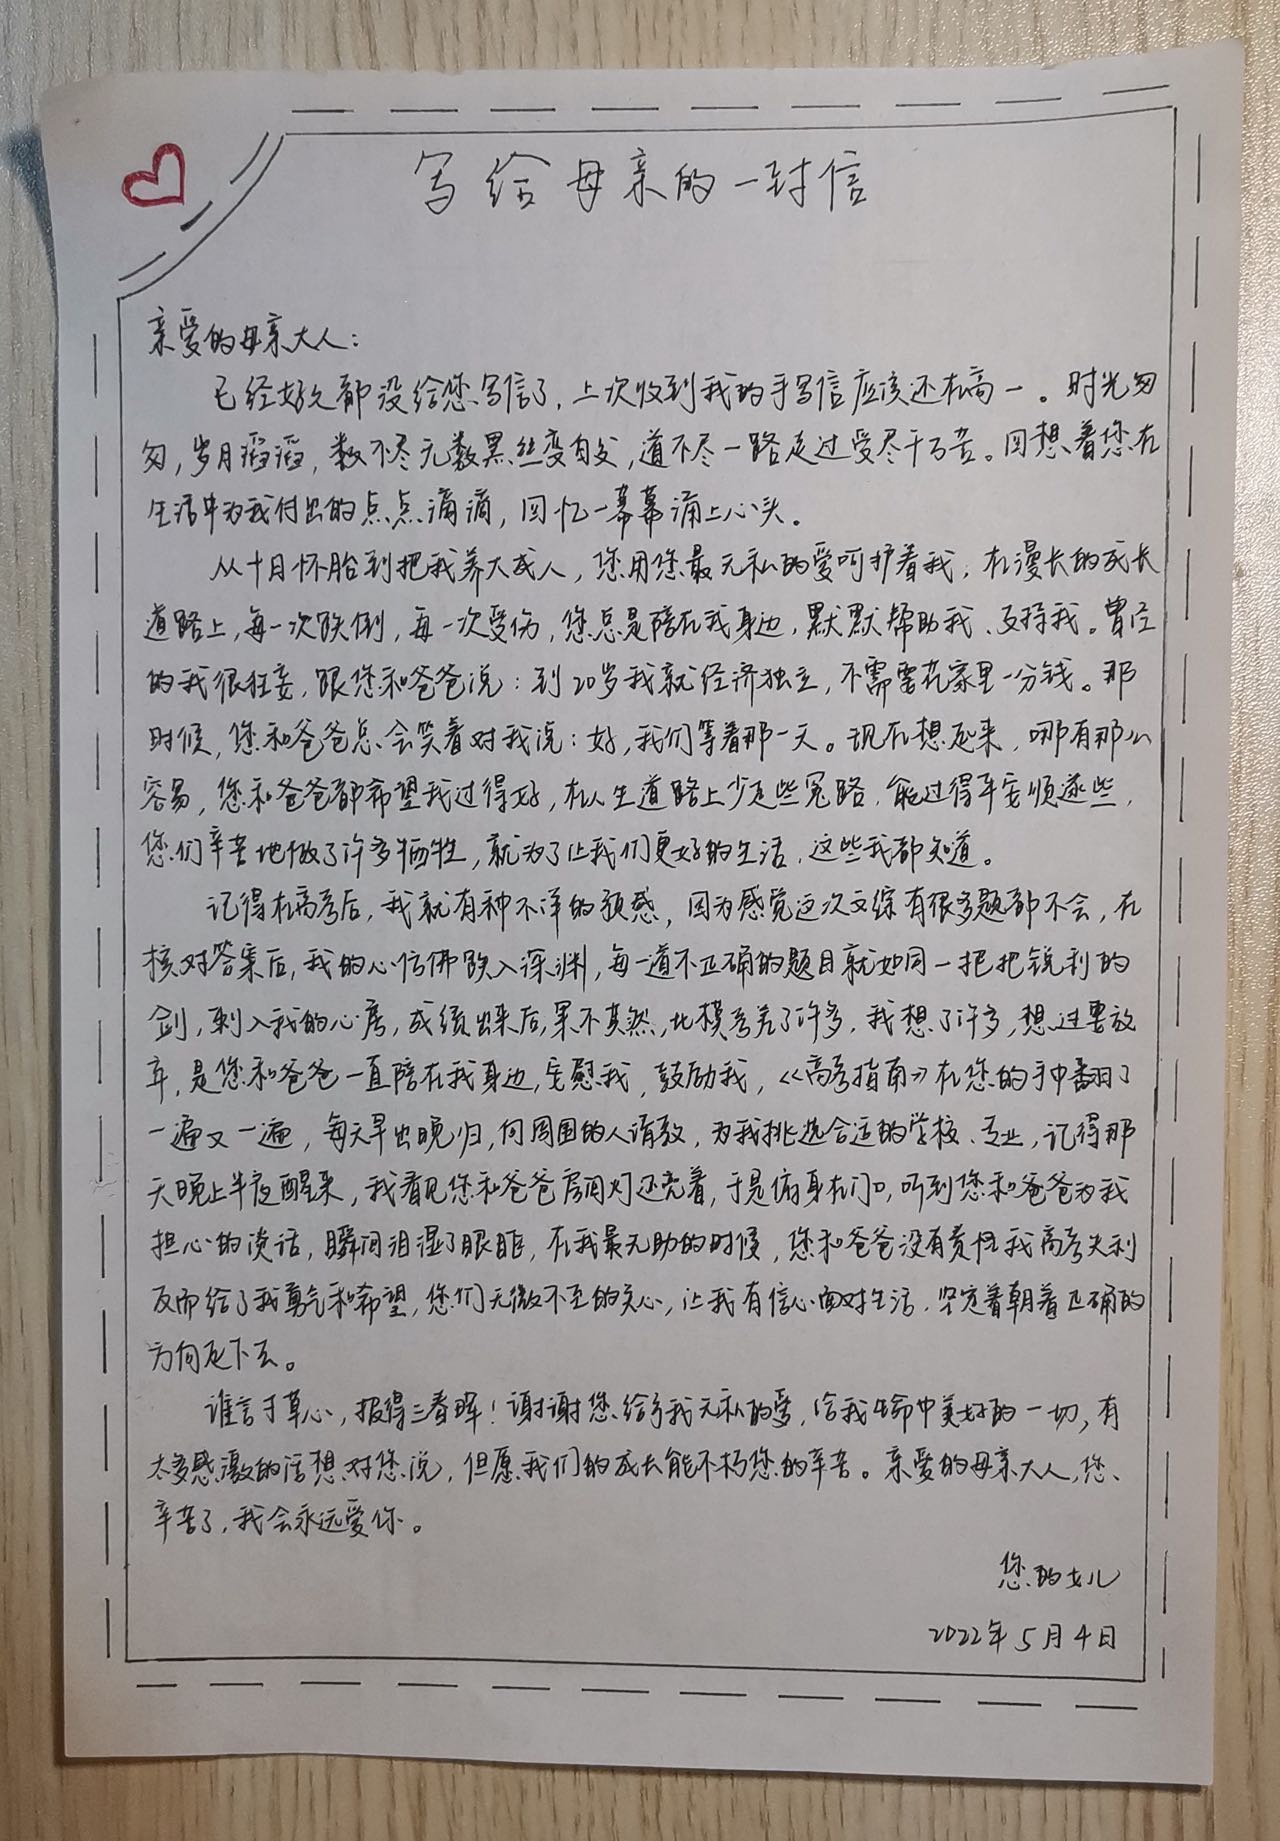 写给母亲的一封信
亲爱的母亲大人：
已经好久都没给您写信了，上次收到我的手写信应该还在高一。时光匆
匆，岁月滔滔，数不尽无数黑丝变白发，道不尽一路走过受尽千万苦。回想着您在
生活中为我付出的点点滴滴，回忆一幕幕涌上心头。
从十月怀胎到把我养大成人，您用您最无私的爱呵护着我，在漫长的成长
道路上，每一次跌倒，每一次受伤，您总是陪在我身边，默默帮助我、支持我。曾经
的我很狂妄，跟您和爸爸说：到20岁我就经济独立，不需要花家里一分钱。那
时候，您和爸爸总会笑着对我说：好，我们等着那一天。现在想起来，哪有那么
容易，您和爸爸都希望我过得好，在人生道路上少走些冤路，能过得平安顺遂些，
您们辛苦地做了许多牺牲，就为了让我们更好的生活，这些我都知道。
记得在高考后，我就有种不详的预感，因为感觉这次文综有很多题都不会，在
核对答案后，我的心仿佛跌入深渊，每一道不正确的题目就如同一把把锐利的
剑，刺入我的心房，成绩出来后，果不其然，比模考差了许多，我想了许多，想过要放
弃，是您和爸爸一直陪在我身边，安慰我，鼓励我，《高考指南》在您的手中翻了
一遍又一遍，每天早出晚归，向周围的人请教，为我挑选合适的学校、专业，记得那
天晚上半夜醒来，我看见您和爸爸房间灯还亮着，于是俯身在门口，听到您和爸爸为我
担心的谈话，瞬间泪湿了眼眶，在我最无助的时候，您和爸爸没有责怪我高考失利
反而给了我勇气和希望，您们无微不至的关心，让我有信心面对生活，坚定着朝着正确的
方向走下去。
谁言寸草心，报得三春晖！谢谢您给予我无私的爱，给我生命中美好的一切，有
太多感激的话想对您说，但愿我们的成长能不朽您的辛苦。亲爱的母亲大人，您、
辛苦了，我会永远爱你。
您的女儿
2022年5月4日